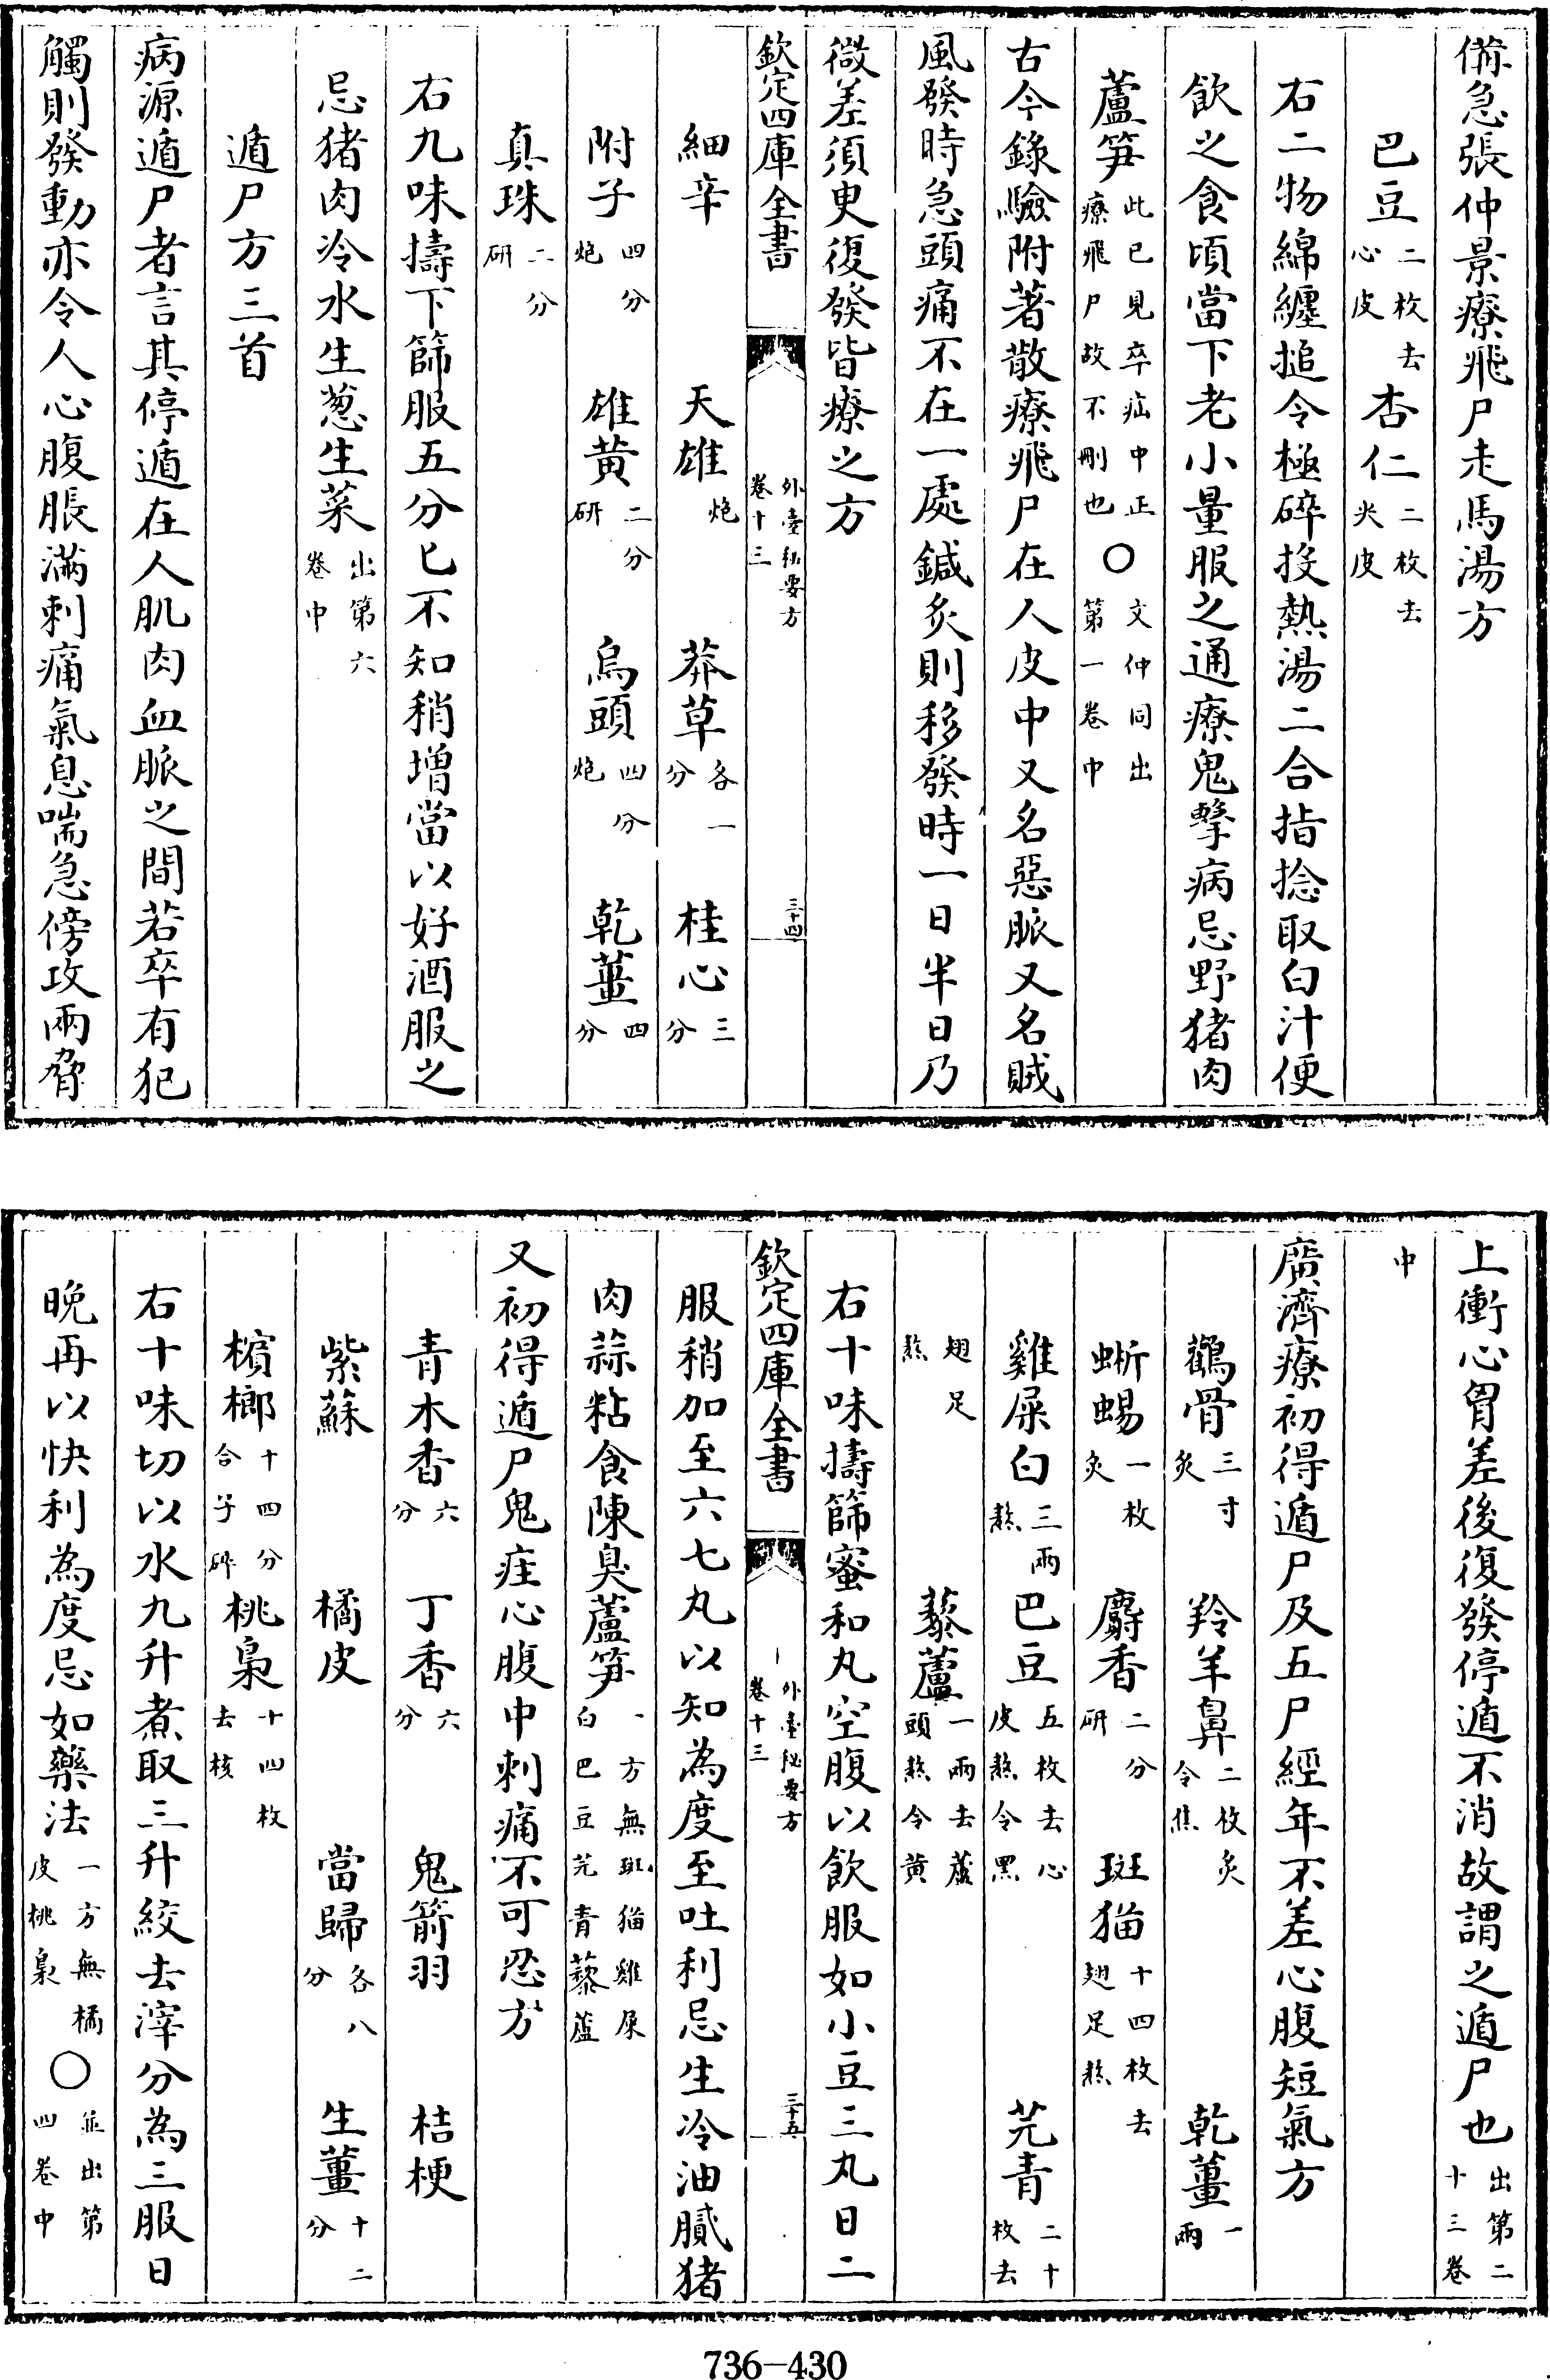 備急張仲景療飛尸走馬湯方
巴豆二枚去心皮 杏仁二枚去尖皮
右二物綿纏搥令極碎投熱湯二合指捻取白汁便
飲之食頃當下老小量服之通療鬼擊病忌野猪肉
蘆笋此已見卒疝中正療飛尸故不刪也〇文仲同出第一卷中
古今錄驗附著散療飛尸在人皮中又名惡脈又名賊
風發時急頭痛不在一處鍼灸則移發時一日半日乃
微差須更復發皆療之方
欽定四庫全書 外臺秘要方卷十三 三十四
細辛 天雄炮 莽草各一分 桂心三分
附子四分炮 雄黃二分研 烏頭四分炮 乾薑四分
真珠二分研
右九味擣下篩服五分匕不知稍增當以好酒服之
忌猪肉冷水生葱生菜出第六卷中
遁尸方三首
病源遁尸者言其停遁在人肌肉血脈之間若卒有犯
觸則發動亦令人心腹脹滿刺痛氣息喘急傍攻兩脅
上衝心胷差後復發停遁不消故謂之遁尸也出第二十三卷
中
廣濟療初得遁尸及五尸經年不差心腹短氣方
鸛骨三寸炙 羚羊鼻二枚炙令焦 乾薑一兩
蜥蜴一枚炙 麝香二分研 斑猫十四枚去翅足熬
雞屎白三兩熬 巴豆五枚去心皮熬令黑 芫青二十枚去
翅足熬 藜蘆一兩去蘆頭熬令黃
右十味擣篩蜜和丸空腹以飲服如小豆三丸日二
欽定四庫全書 外臺秘要方卷十三 三十五
服稍加至六七丸以知為度至吐利忌生冷油膩猪
肉蒜粘食陳臭蘆笋一方無斑猫雞屎白巴豆芫青藜蘆
又初得遁尸鬼疰心腹中刺痛不可忍方
青木香六分 丁香六分 鬼箭羽 桔梗
紫蘇 橘皮 當歸各八分 生薑十二分
檳榔十四分合子碎 桃梟十四枚去核
右十味切以水九升煮取三升絞去滓分為三服日
晚再以快利為度忌如藥法一方無橘皮桃梟〇並出第四卷中
736-430